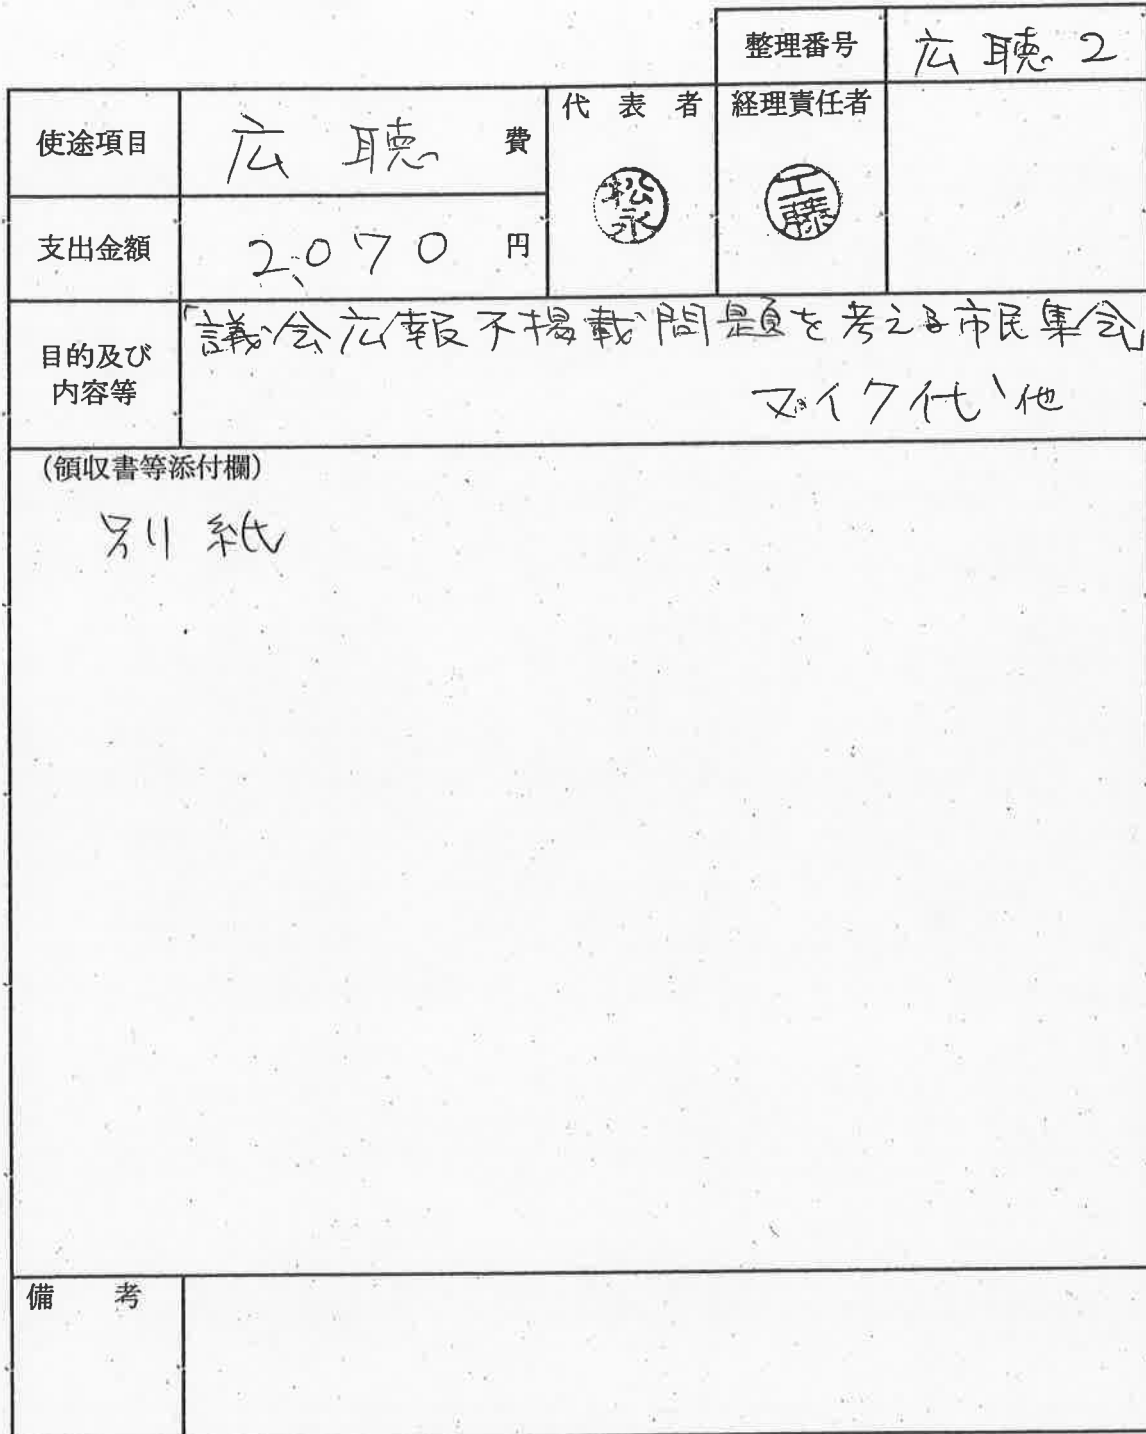 整理番号 広聴2
使途項目 広聴 費
代表者 経理責任者
松永 工藤
支出金額 2,070 円
目的及び内容等
「議会広報不掲載問題を考える市民集会」
マイク代、他
(領収書等添付欄)
別紙
備考